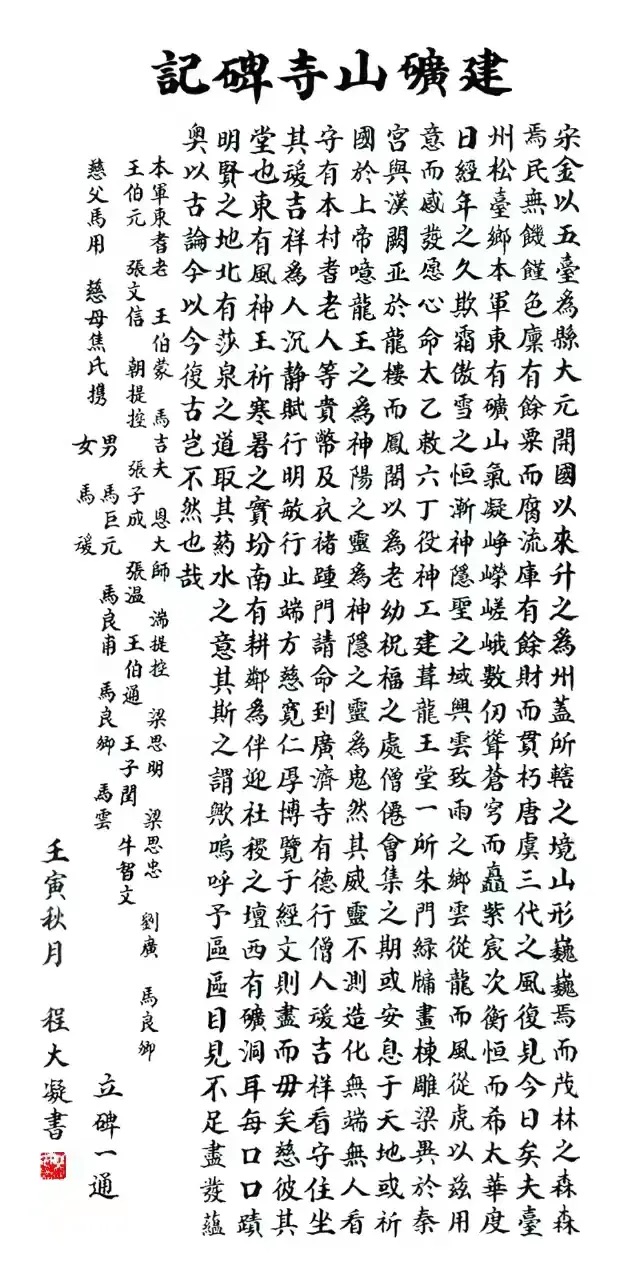 建礦山寺碑記
宋金以五臺為縣大元開國以來升之為州蓋所轄之境山形巍巍焉而茂林之森森
焉民無饑饉色廩有餘粟而腐流庫有餘財而貫朽唐虞三代之風復見今日矣夫臺
州松臺鄉本軍東有礦山氣凝崢嶸嵯峨數仞聳蒼穹而矗紫宸次衡恒而希太華度
日經年之久欺霜傲雪之恒漸神隱聖之域興雲致雨之鄉雲從龍而風從虎以兹用
意而感發愿心命太乙敕六丁役神工建葺龍王堂一所朱門綠牖畫棟雕梁異於秦
宮與漢闕亚於龍樓而鳳閣以為老幼祝福之處僧僊會集之期或安息于天地或祈
國於上帝噫龍王之為神陽之靈為神隱之靈為鬼然其威靈不測造化無端無人看
守有本村耆老人等貴幣及衣褚踵門請命到廣濟寺有德行僧人瑗吉祥看守住坐
其瑗吉祥為人沉静賦行明敏行止端方慈寬仁厚博覽于經文則盡而毋矣慈彼其
堂也東有風神王祈寒暑之實坋南有耕鄰為伴迎社稷之壇西有礦洞耳每口口蹟
明賢之地北有莎泉之道取其葯水之意其斯之謂歟嗚呼予區區目見不足盡發蘊
奥以古論今以今復古岂不然也哉
本軍東耆老 王伯蒙 馬吉夫 恩大師 湍提控 梁思明 梁思忠 劉廣 馬良卿
王伯元 張文信 朝提控 張子成 張温 王伯通 王子閏 牛智文
慈父馬用 慈母焦氏携 男 馬巨元 馬良甫 馬良卿 馬雲
女 馬瑗
立碑一通
壬寅秋月 程大凝書